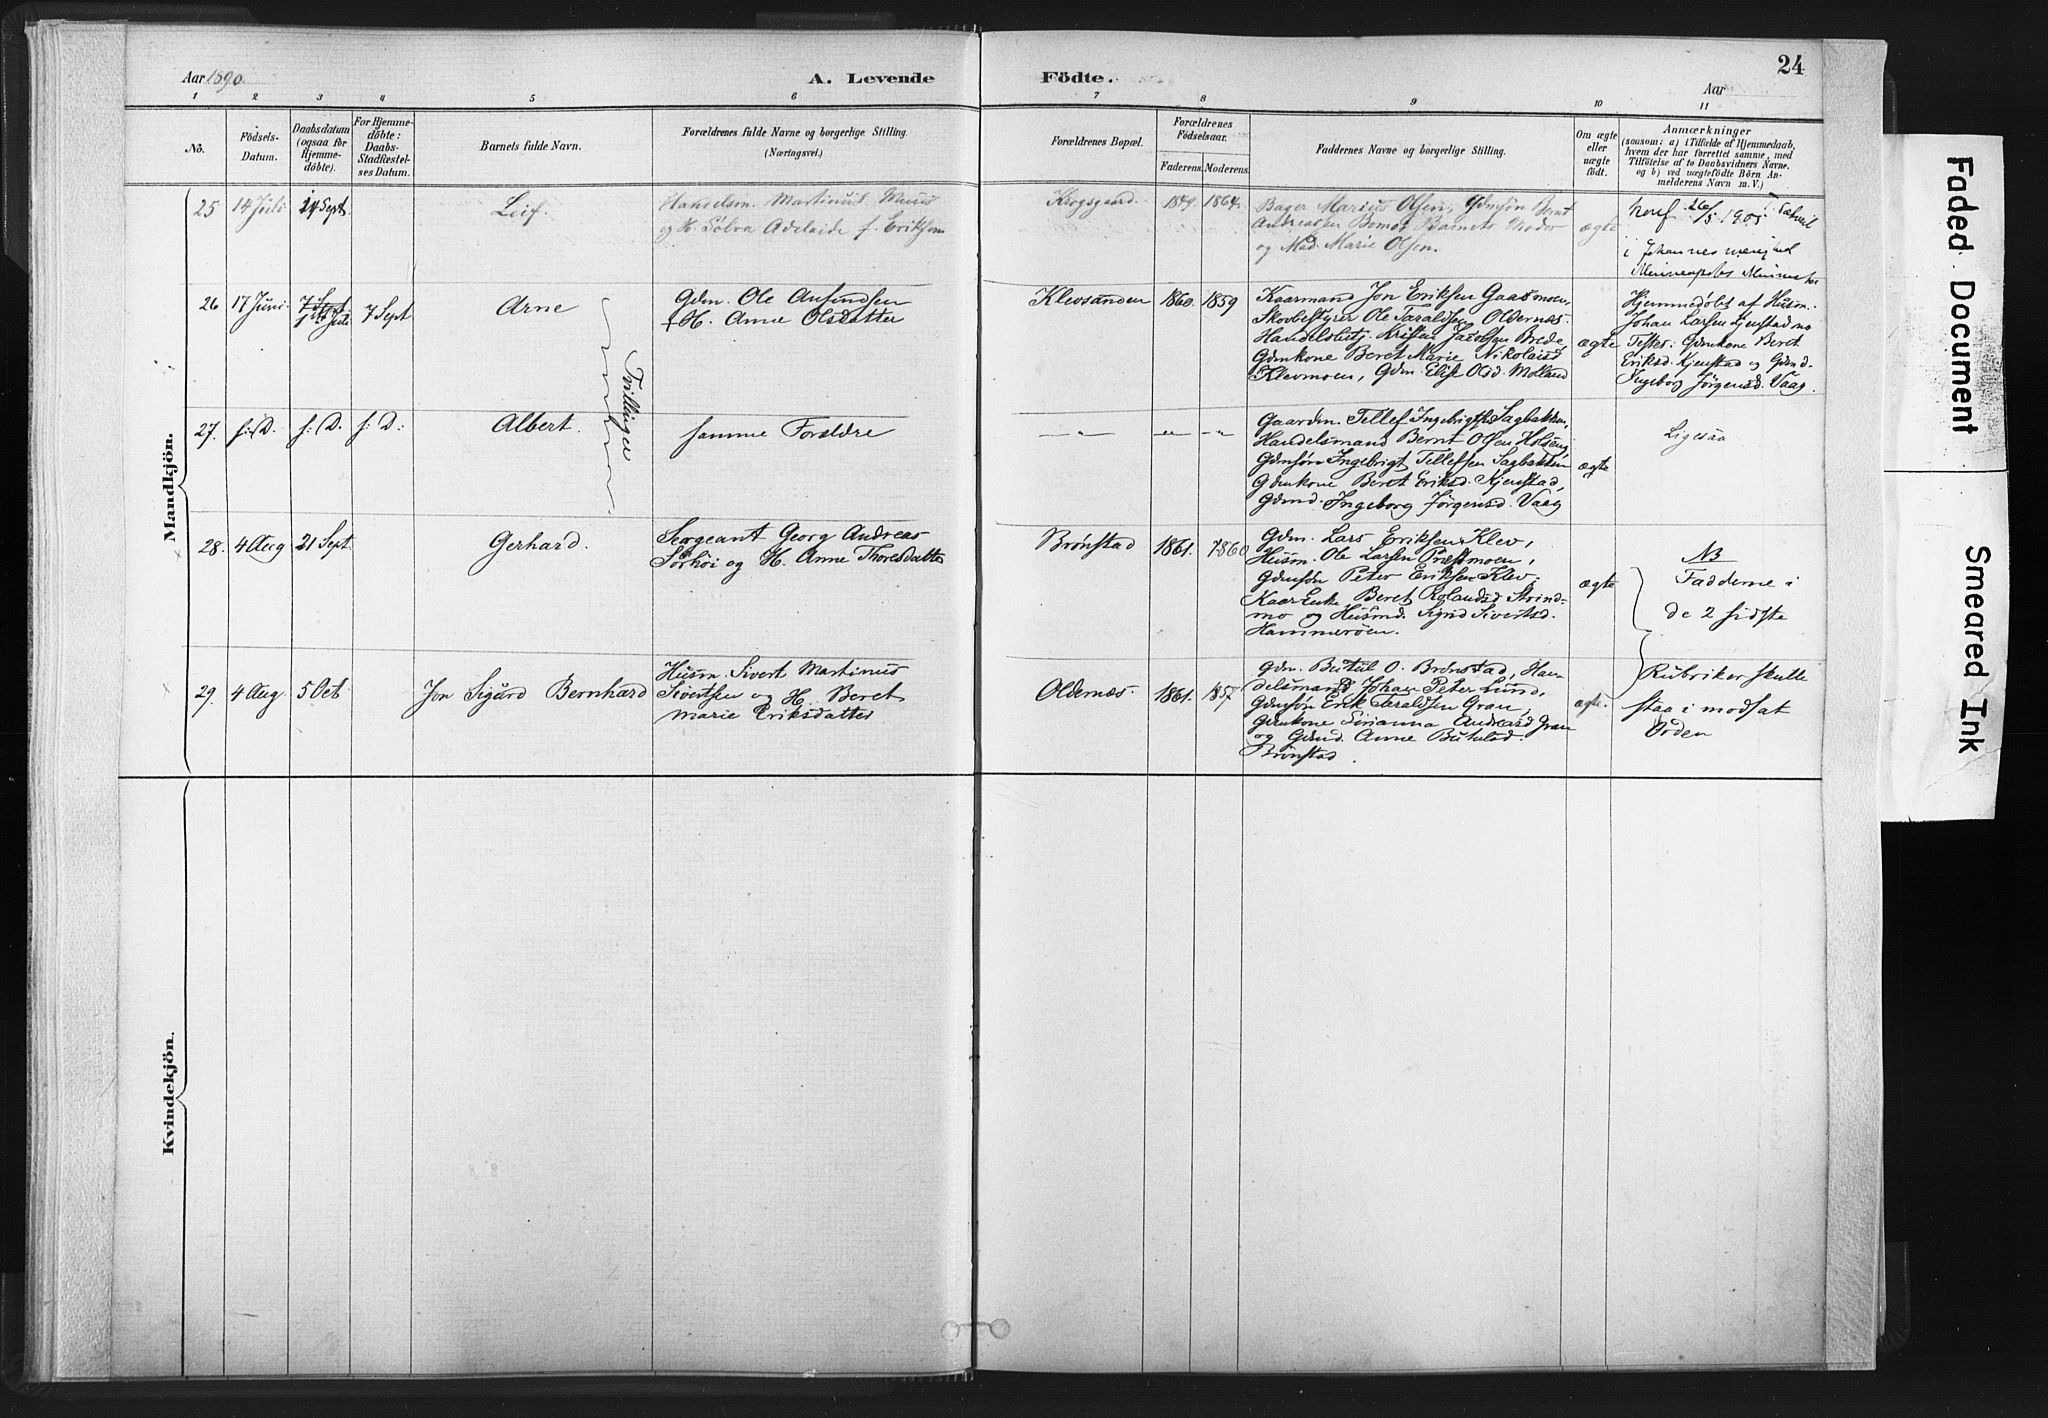 Aar 1890
A. Levende
Födte.
Aar
24
1
2
3
4
5
6
7
8
9
10
11
Nö.
Födsels-
Datum.
Daabsdatum
(ogsaa for
Hjemme-
döbte).
For Hjemme-
döbte:
Daabs-
Stadfæstel-
ses Datum.
Barnets fulde Navn.
Forældrenes fulde Navne og borgerlige Stilling.
(Næringsvei.)
Forældrenes Bopæl.
Forældrenes
Födselsaar.
Faderens.
Moderens.
Faddernes Navne og borgerlige Stilling.
Om ægte
eller
uægte
födt.
Anmærkninger
(saasom: a) i Tilfælde af Hjemmedaab,
hvem der har forrettet samme, med
Tilföielse af to Daabsvidners Navne.
og b) ved uægtefödte Börn An-
melderens Navn m. V.)
Mandkjön.
25
14 Juli
14 Sept.
Leif.
Handelsm. Martinus
og H. Sølva Adelaide f. Eriksen
Krogsgaard.
1864.
Bager Marius Olsen, Gdmsøn Bernt
Andreassen Bemo, Barnets Moder
og Mad. Marie Olsen.
ægte
26/5 1905
i Johannes menighed
Minneapolis
26
17 Juni
7 Sept
Juli
7 Sept
Arne
Gdm. Ole Anfindsen
H. Anne Olsdatter
Klevsanden
1860.
1859
Kaarmand Jon Eriksen Gaasmoen,
Skovbestyrer Ole Taraldsen Oldernæs.
Handelsbetj. Kristen Jacobsen Brede,
Gdmkone Beret Marie Nikolaisd
Klevmoen, Gdm. Elise Olsd. Molland
ægte
Hjemmedøbt af Husm.
Johan Larsen Kjenstadmo
Testes: Gdmkone Beret
Eriksd. Kjenstad og Gdmd.
Ingeborg Jørgensd. Vaag.
Tvillinger
27.
s: D.
s: D.
s: D:
Albert.
samme Forældre
— „ —
— „ —
Gaardm. Tellef Ingebrigtsen Sagbakken,
Handelsmand Bernt Olsen Holseng,
Gdmsøn Ingebrigt Tellefsen Sagbakken
Gdmkone Beret Eriksd. Kjenstad,
Gdmd. Ingeborg Jørgensd. Vaag
ægte
Ligesaa
28.
4 Aug
21 Sept.
Gerhard.
Sergeant Georg Andreas
Sørhøi og H. Anne Thoresdatter
Brønstad
1861.
1860
Gdm. Lars Eriksen Klev,
Husm. Ole Larsen Præstmoen,
Gdmsøn Peter Eriksen Klev.
Kaarenke Beret Rolandsd Strind-
mo og Husmd. Sigrid Sivertsd.
Hammerøen.
ægte
NB
Fadderne i
de 2 sidste
Rubriker skulle
staa i modsat
Orden
29.
4 Aug.
5 Oct.
Jon Sigurd Bernhard
Husm. Sivert Martinus
Sivertsen og H. Beret
Marie Eriksdatter
Oldernæs.
1861.
1857
Gdm. Butul O. Brønstad, Han-
delsmand Johan Peter Lund,
Gdmsøn Erik Taraldsen Gran,
Gdmkone Sirianna Andreasd Gran
og Gdmd. Anne Butulsd.
Brønstad.
ægte.
Kvindekjön.
Faded Document
Smeared Ink